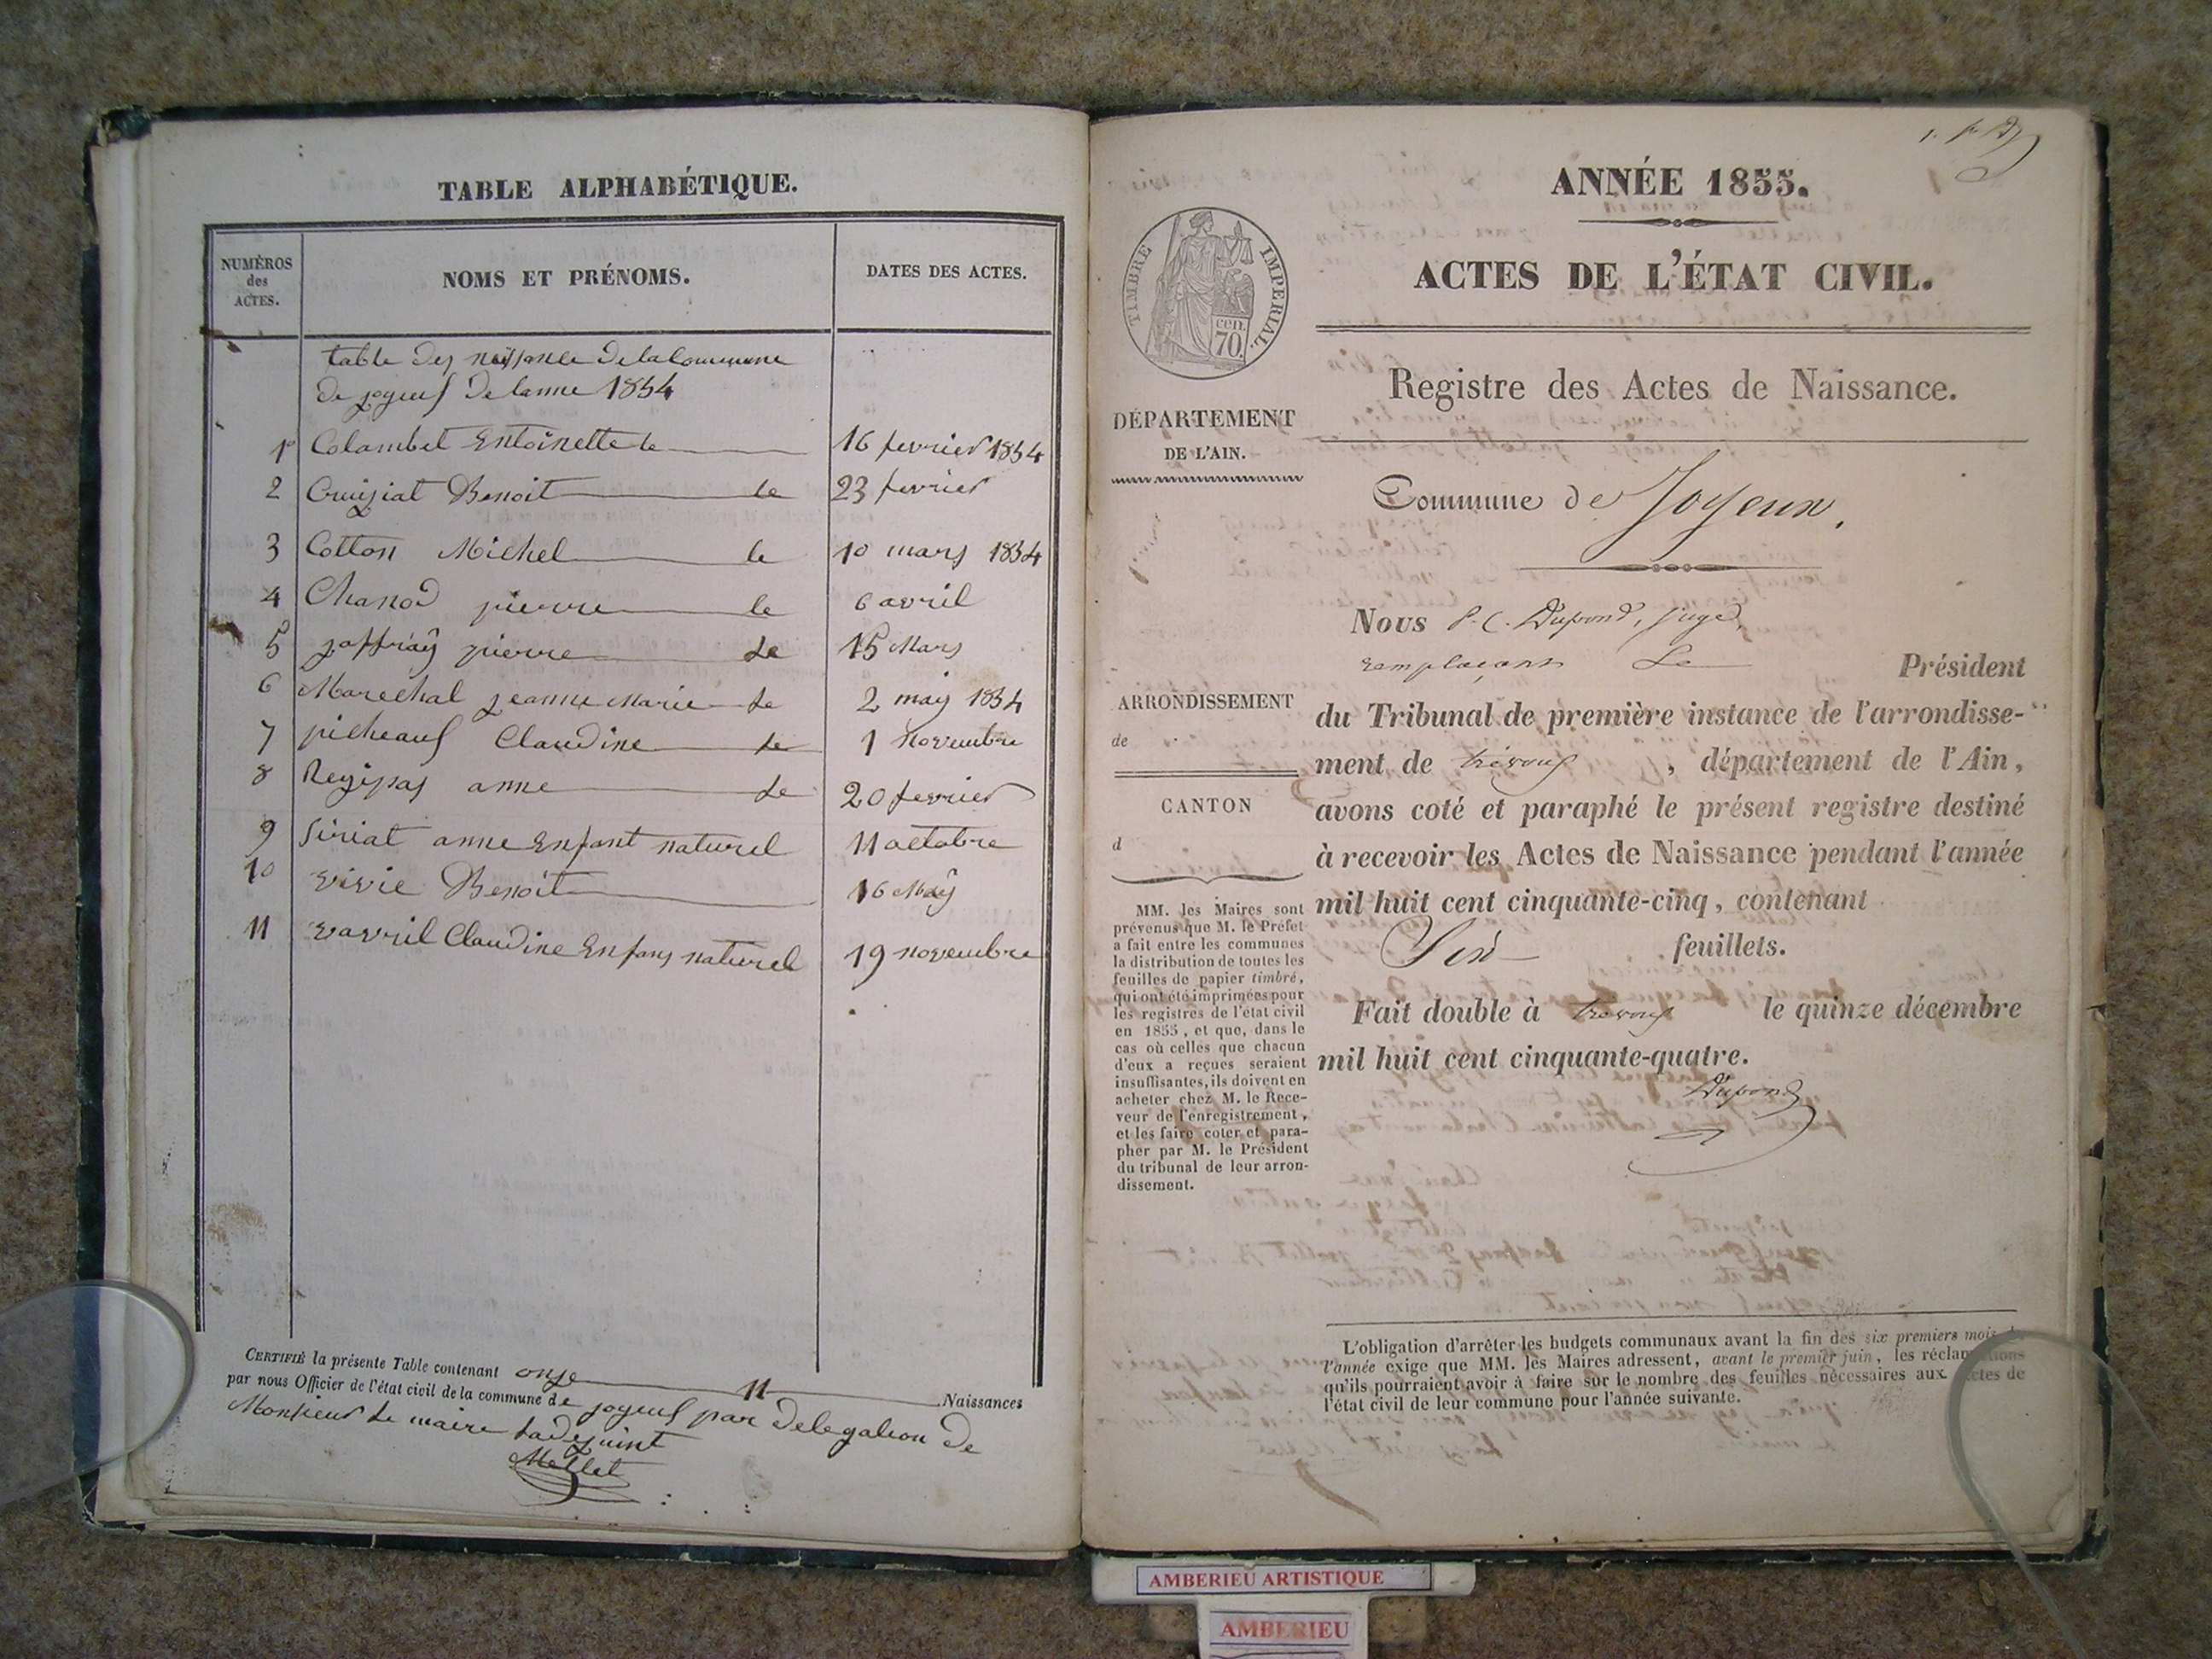 TABLE ALPHABÉTIQUE.
NUMÉROS
des
ACTES.
NOMS ET PRÉNOMS.
DATES DES ACTES.
table des naissance de la Commune
de joyeux de lanne 1854
1er Colambet Entoinette le 16 fevrier 1854
2 Cruiziat Benoit le 23 fevrier
3 Cotton Michel le 10 mars 1854
4 Chanod pierre le 6 avril
5 joffray pierre le 15 Mars
6 Marechal jeanne Marie le 2 may 1854
7 picheaux Claudine le 1 novembre
8 anne le 20 fevrier
9 Siriat anne Enfant naturel 11 octobre
10 vivie Benoit 16 May
11 vavril Claudine Enfans naturel 19 novembre
CERTIFIÉ la présente Table contenant onze 11 Naissances
par nous Officier de l'état civil de la commune de joyeux par delegation de
Monsieur le maire ladejuint
Mollet
ANNÉE 1855.
ACTES DE L'ÉTAT CIVIL.
TIMBRE IMPERIAL.
cen.
70.
Registre des Actes de Naissance.
DÉPARTEMENT
DE L'AIN.
Commune de Joyeux.
Nous P. C. Dupond, juge,
remplaçant Le Président
du Tribunal de première instance de l'arrondisse-
ment de trévoux, département de l'Ain,
avons coté et paraphé le présent registre destiné
à recevoir les Actes de Naissance pendant l'année
mil huit cent cinquante-cinq, contenant
Six feuillets.
Fait double à trevoux le quinze décembre
mil huit cent cinquante-quatre.
Dupond
ARRONDISSEMENT
de
CANTON
d
MM. les Maires sont
prévenus que M. le Préfet
a fait entre les communes
la distribution de toutes les
feuilles de papier timbré,
qui ont été imprimées pour
les registres de l'état civil
en 1855, et que, dans le
cas où celles que chacun
d'eux a reçues seraient
insuffisantes, ils doivent en
acheter chez M. le Rece-
veur de l'enregistrement,
et les faire coter et para-
pher par M. le Président
du tribunal de leur arron-
dissement.
L'obligation d'arrêter les budgets communaux avant la fin des six premiers mois de
l'année exige que MM. les Maires adressent, avant le premier juin, les réclamations
qu'ils pourraient avoir à faire sur le nombre des feuilles nécessaires aux actes de
l'état civil de leur commune pour l'année suivante.
AMBERIEU ARTISTIQUE
AMBERIEU